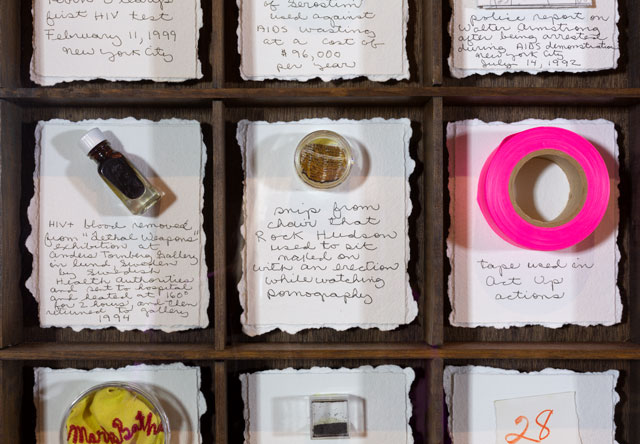 first HIV test
February 11, 1999
New York City
of Serostim
used against
AIDS wasting
at a cost of
$96,000
per year
police report on
Walter Armstrong
after being arrested
during AIDS demonstration
New York City
July 14, 1992
HIV+ blood removed
from "Lethal Weapons"
exhibition at
Anders Tornberg Gallery
in Lund, Sweden
by Swedish
Health Authorities
and sent to hospital
and heated at 160°
for 2 hours, and then
returned to gallery
1994
snip from
chair that
Rock Hudson
used to sit
naked on
with an erection
while watching
pornography
tape used in
Act Up
actions
Mary Bath
28